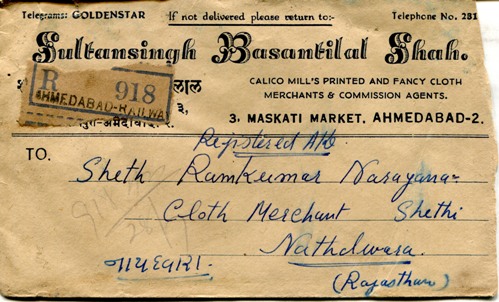 Telegrams: GOLDENSTAR If not delivered please return to:- Telephone No. 281
Sultansingh Basantilal Shah.
R 918
AHMEDABAD-RAILWA
लाल
CALICO MILL'S PRINTED AND FANCY CLOTH
MERCHANTS & COMMISSION AGENTS.
3, MASKATI MARKET, AHMEDABAD-2.
Registered A/D
TO.
Sheth Ramkumar Narayana-
Cloth Merchant Shethi
Nathdwara.
(Rajasthan)